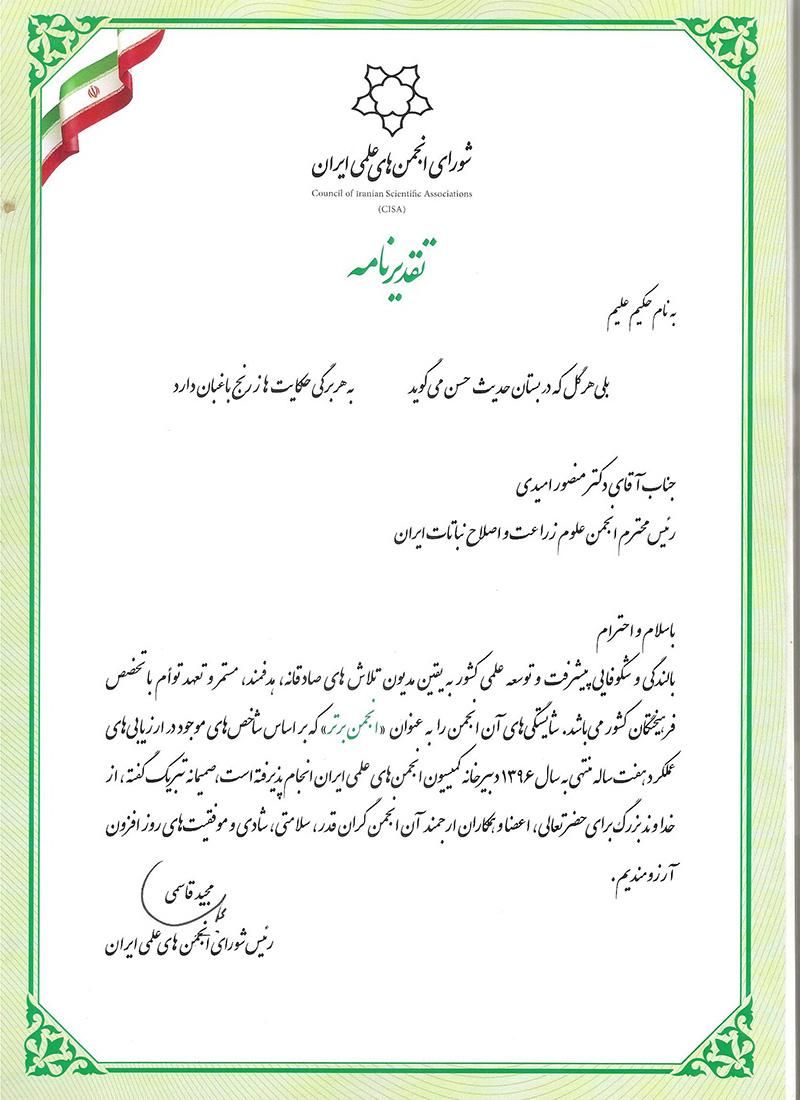 شورای انجمن های علمی ایران
Council of Iranian Scientific Associations
(CISA)
تقدیرنامه
به نام حکیم علیم
بلی هر گل که در بستان حدیث حسن می گوید به هر برگی حکایت ها ز رنج باغبان دارد
جناب آقای دکتر منصور امیدی
رئیس محترم انجمن علوم زراعت و اصلاح نباتات ایران
با سلام و احترام
بالندگی و شکوفایی پیشرفت و توسعه علمی کشور به یقین مدیون تلاش های صادقانه، هدفمند، مستمر و تعهد توأم با تخصص
فرهیختگان کشور می باشد. شایستگی های آن انجمن را به عنوان «انجمن برتر» که بر اساس شاخص های موجود در ارزیابی های
عملکرد هفت ساله منتهی به سال ۱۳۹۶ دبیرخانه کمیسیون انجمن های علمی ایران انجام پذیرفته است، صمیمانه تبریک گفته، از
خداوند بزرگ برای حضرتعالی، اعضا و همکاران ارجمند آن انجمن گران قدر، سلامتی، شادی و موفقیت های روز افزون
آرزومندیم.
مجید قاسمی
رئیس شورای انجمن های علمی ایران